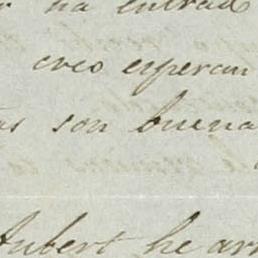 ha entrado
creo esperan
son buena
Aubert he arr